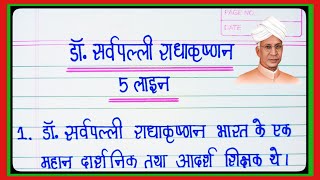 PAGE NO.
DATE
डॉ. सर्वपल्ली राधाकृष्णन
5 लाइन
1. डॉ. सर्वपल्ली राधाकृष्णन भारत के एक
महान दार्शनिक तथा आदर्श शिक्षक थे।